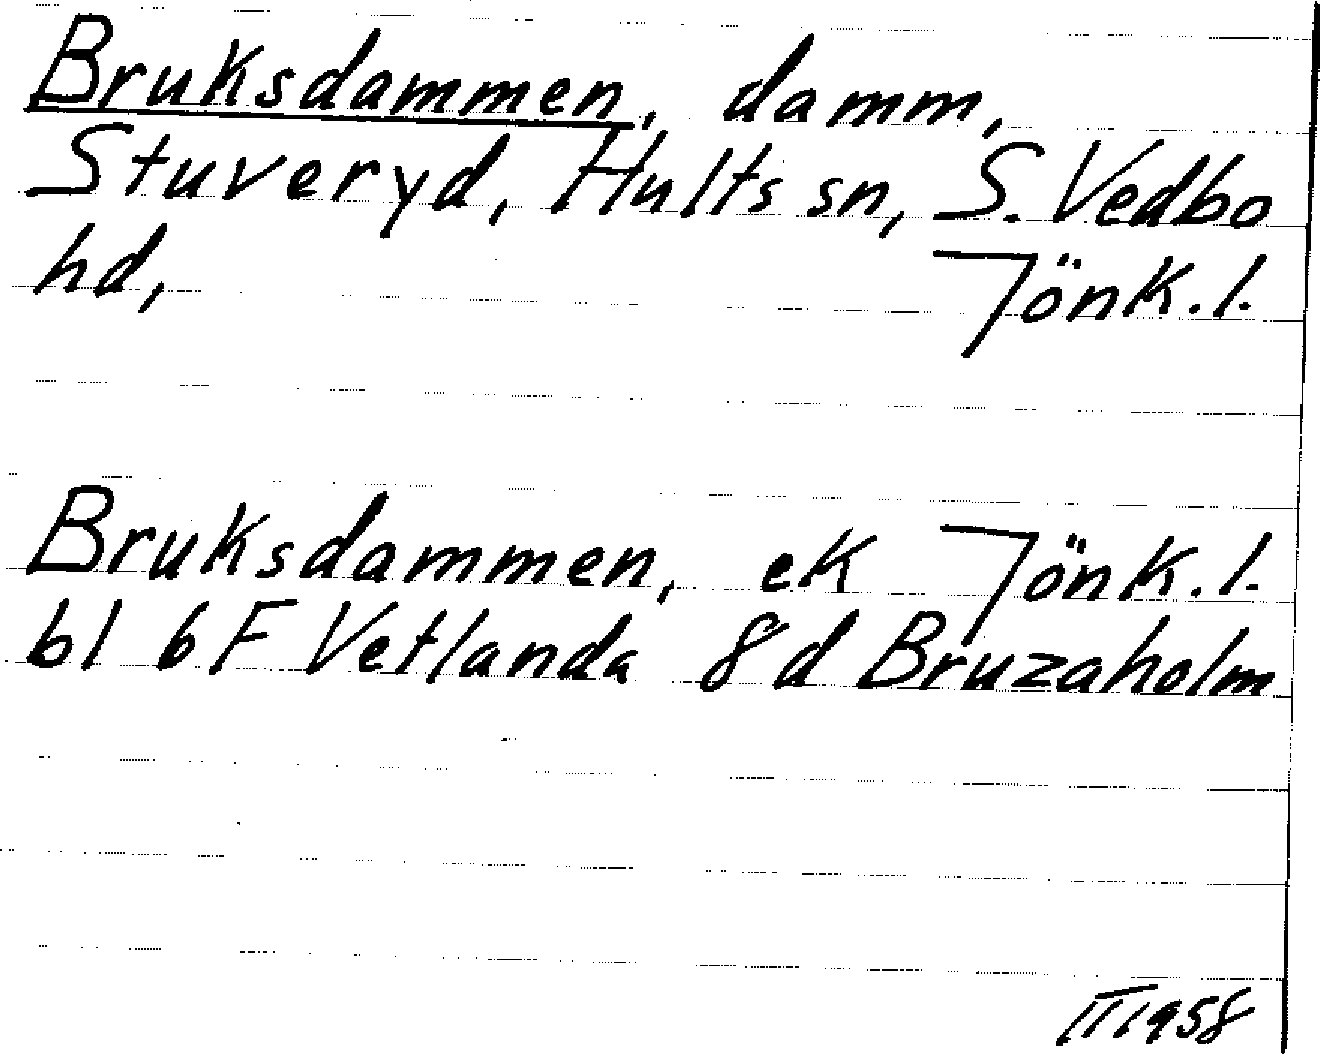 Bruksdammen, damm,
Stuveryd, Hults sn, S. Vedbo
hd, Jönk. l.
Bruksdammen, ek Jönk. l.
bl 6 F Vetlanda 8 d Bruzaholm
1958